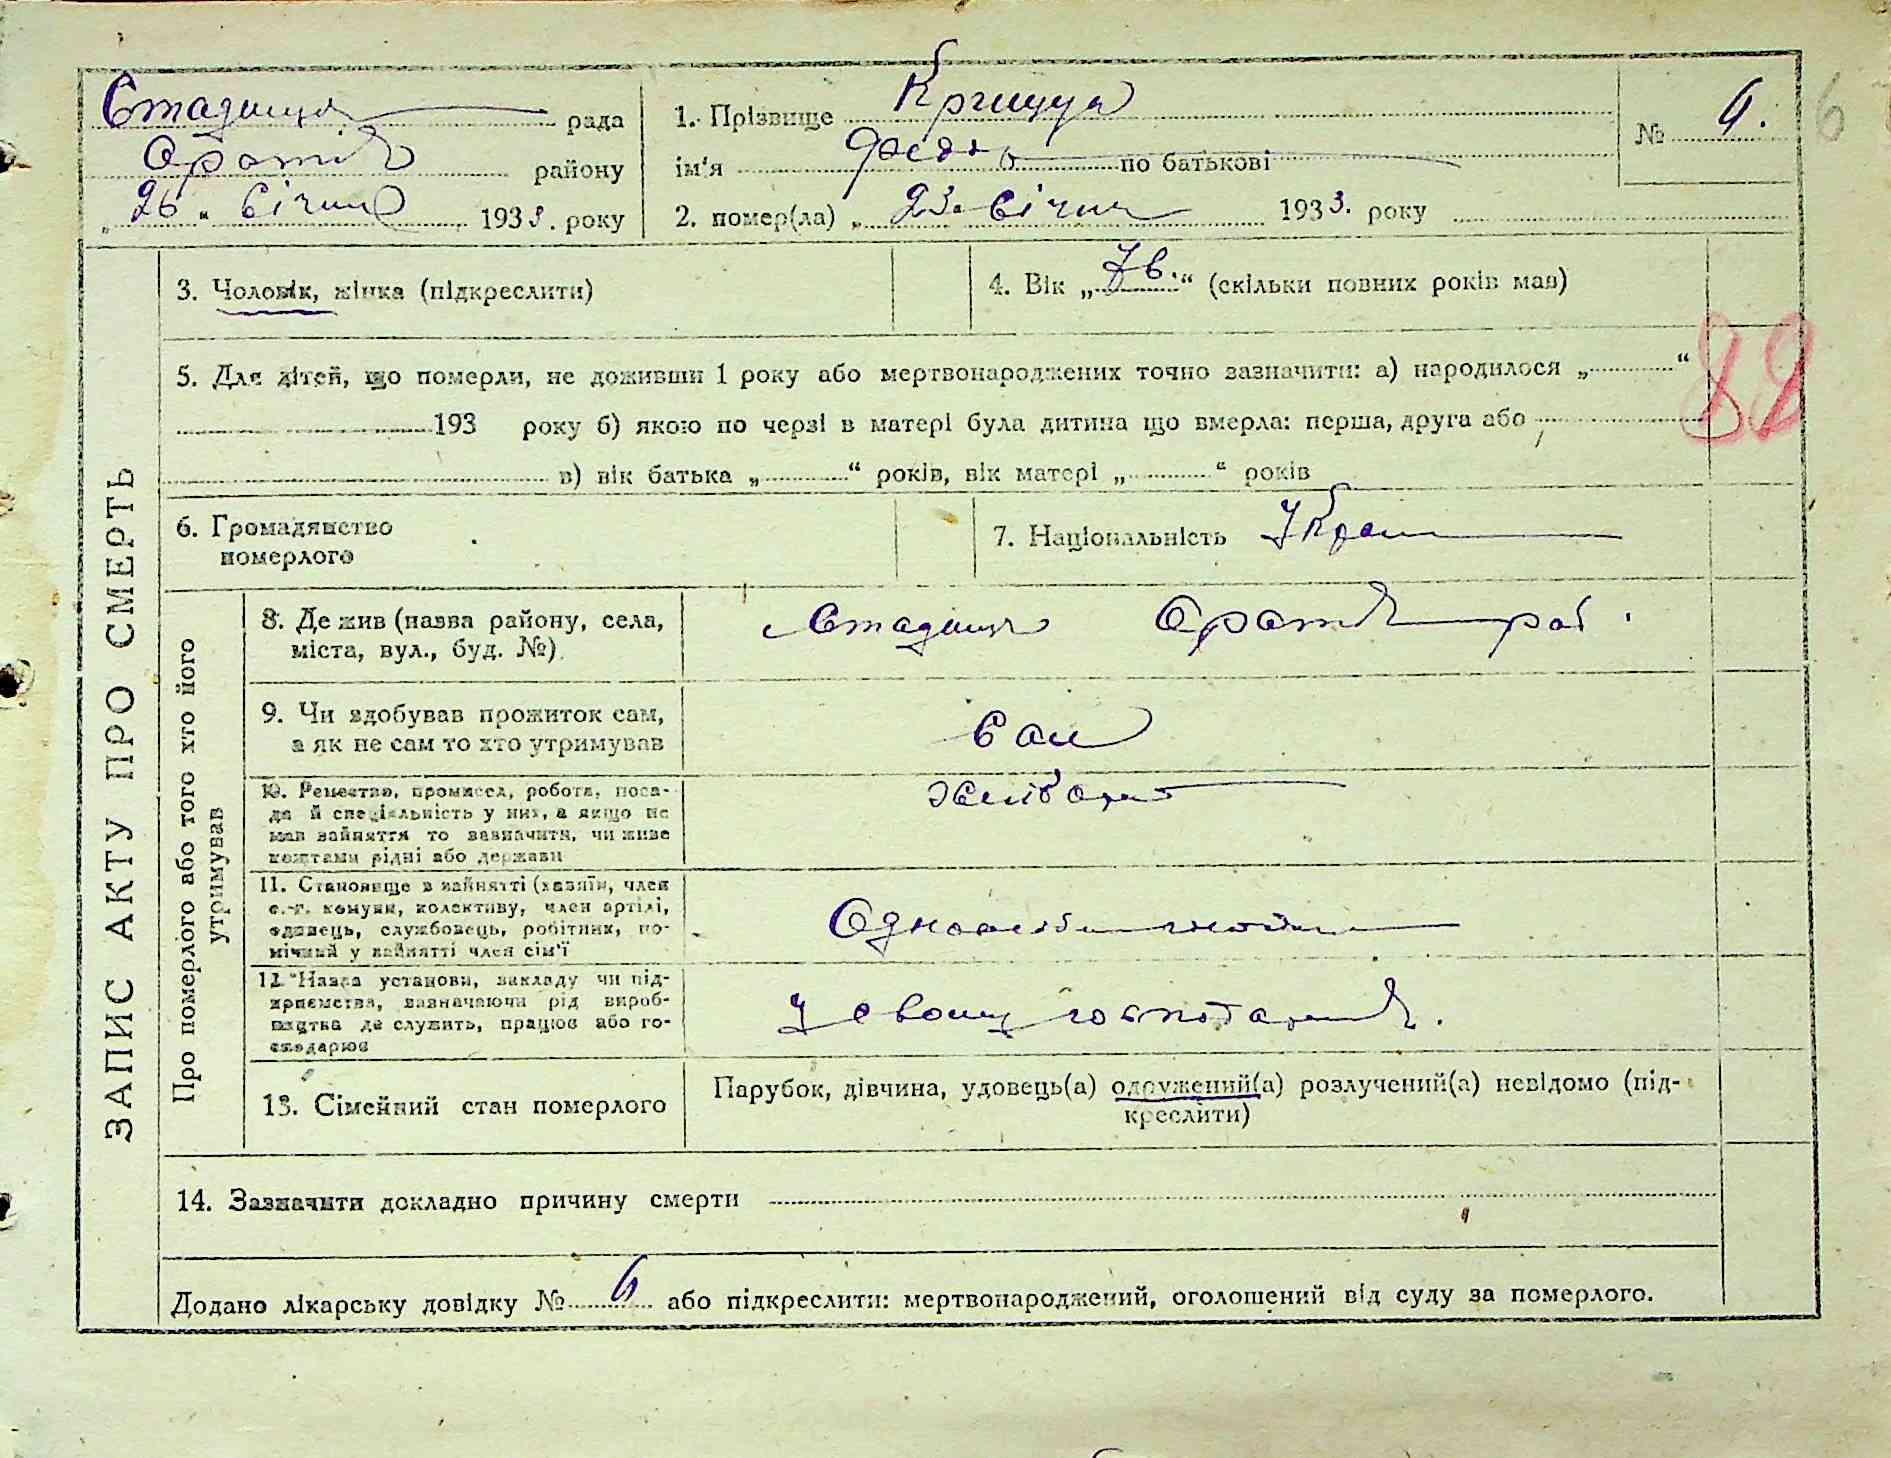 Стадниця рада
Оратів району
„ 26 “ Січня 1933. року
1. Прізвище
ім'я Федор по батькові
2. помер(ла) „ 23. Січня 1933. року
№ 6.
6
ЗАПИС АКТУ ПРО СМЕРТЬ
3. Чоловік, жінка (підкреслити)
4. Вік „ 76. “ (скільки повних років мав)
88
5. Для дітей, що померли, не доживши 1 року або мертвонароджених точно зазначити: а) народилося „ “
193 року б) якою по черзі в матері була дитина що вмерла: перша, друга або
в) вік батька „ “ років, вік матері „ “ років
6. Громадянство
померлого
7. Національність Україн
Про померлого або того хто його
утримував
8. Де жив (назва району, села,
міста, вул., буд. №)
Стадниця Оратів рай.
9. Чи здобував прожиток сам,
а як не сам то хто утримував
Сам
10. Ремество, промисел, робота, поса-
да й спеціяльність у них, а якщо не
мав зайняття то зазначити, чи живе
коштами рідні або держави
Хлібороб
11. Становище в зайнятті (хазяїн, член
с.-г. комуни, колективу, член артілі,
одинець, службовець, робітник, по-
мічний у зайнятті член сім'ї
Одноосібник
12. Назва установи, закладу чи під-
приємства, зазначаючи рід вироб-
ництва де служить, працює або го-
сподарює
У своему господарстві.
13. Сімейний стан померлого
Парубок, дівчина, удовець(а) одружений(а) розлучений(а) невідомо (під-
креслити)
14. Зазначити докладно причину смерти
Додано лікарську довідку № 6 або підкреслити: мертвонароджений, оголошений від суду за померлого.